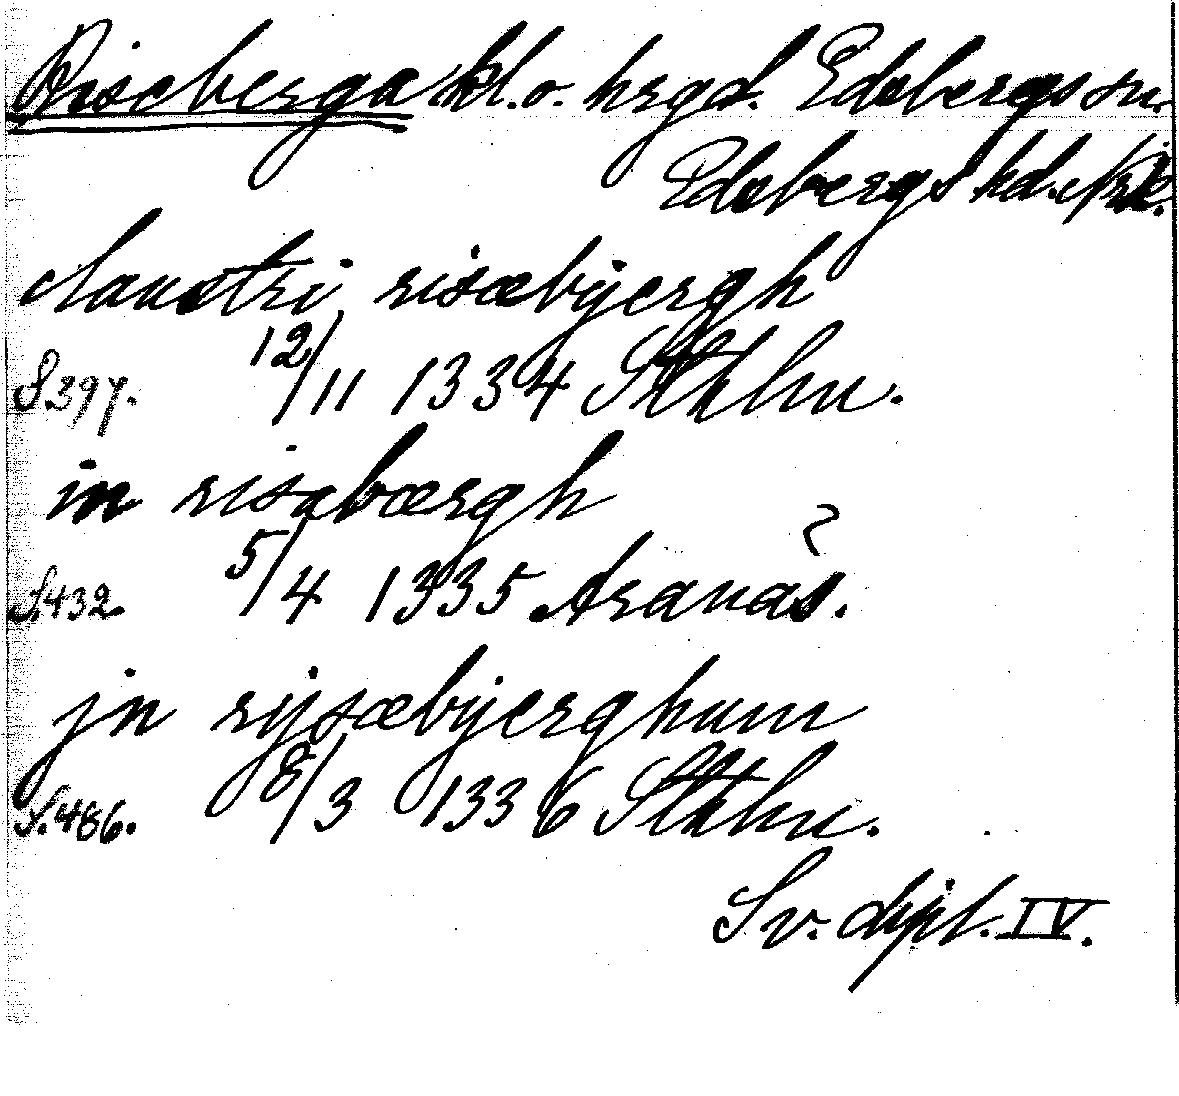 Riseberga kl. o. hrgd. Edsbergs sn.
Edsbergs hd. Nrk.
claustri risæbÿergh
S. 397. 12/11 1334 Sthlm.
in risabærgh
S. 432. 5/4 1335 Aranäs.
jn rijsæbÿerghum
S. 486. 8/3 1336 Sthlm.
Sv. dipl. IV.